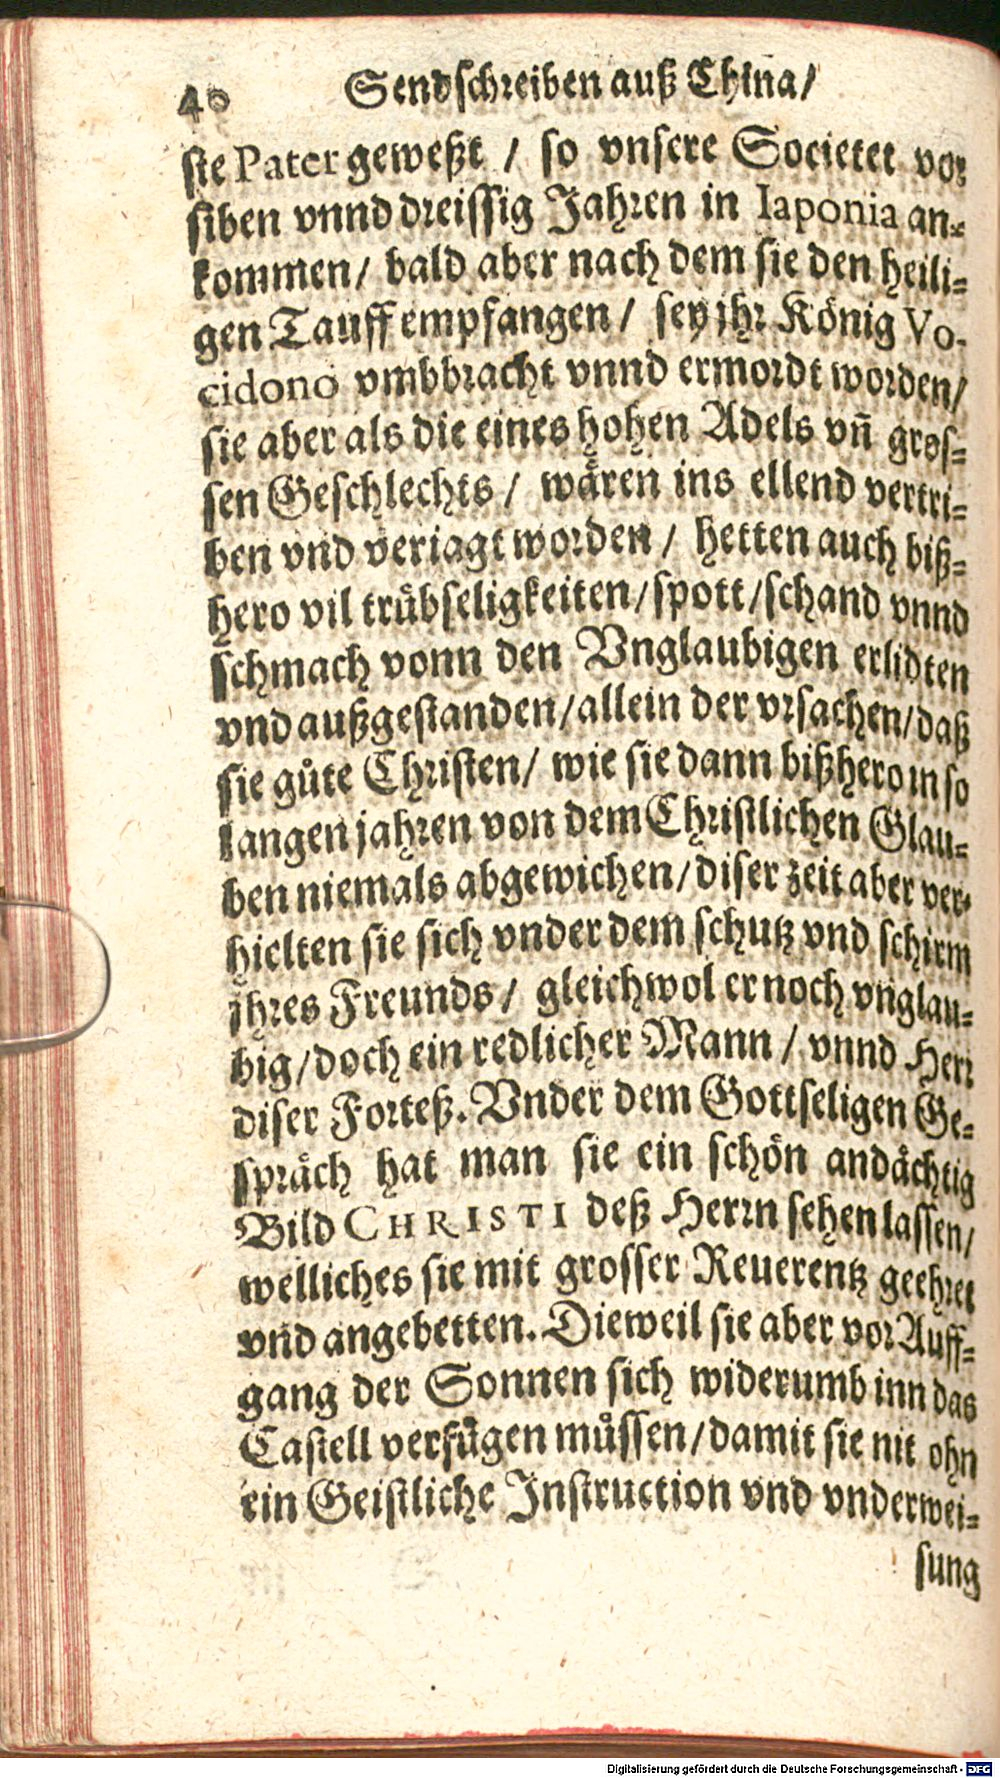 40 Sendschreiben auß China/
ste Pater geweßt / so vnsere Societet vor
siben vnnd dreissig Jahren in Iaponia an-
kommen/ bald aber nach dem sie den heili-
gen Tauff empfangen / sey jhr König Vo-
cidono vmbbracht vnnd ermordt worden/
sie aber als die eines hohen Adels vn̄ gros-
sen Geschlechts / wären ins ellend vertri-
ben vnd veriagt worden / hetten auch biß-
hero vil trübseligkeiten/spott/schand vnnd
schmach vonn den Vnglaubigen erlidten
vnd außgestanden/allein der vrsachen/daß
sie gůte Christen/ wie sie dann bißhero in so
langen jahren von dem Christlichen Glau-
ben niemals abgewichen/diser zeit aber ver-
hielten sie sich vnder dem schutz vnd schirm
jhres Freunds / gleichwol er noch vnglau-
big/doch ein redlicher Mann / vnnd Herr
diser Forteß. Vnder dem Gottseligen Ge-
spräch hat man sie ein schön andächtig
Bild CHRISTI deß Herrn sehen lassen/
welliches sie mit grosser Reuerentz geehret
vnd angebetten. Dieweil sie aber vor Auff-
gang der Sonnen sich widerumb inn das
Castell verfügen müssen/damit sie nit ohn
ein Geistliche Instruction vnd vnderwei-
sung
Digitalisierung gefördert durch die Deutsche Forschungsgemeinschaft - DFG